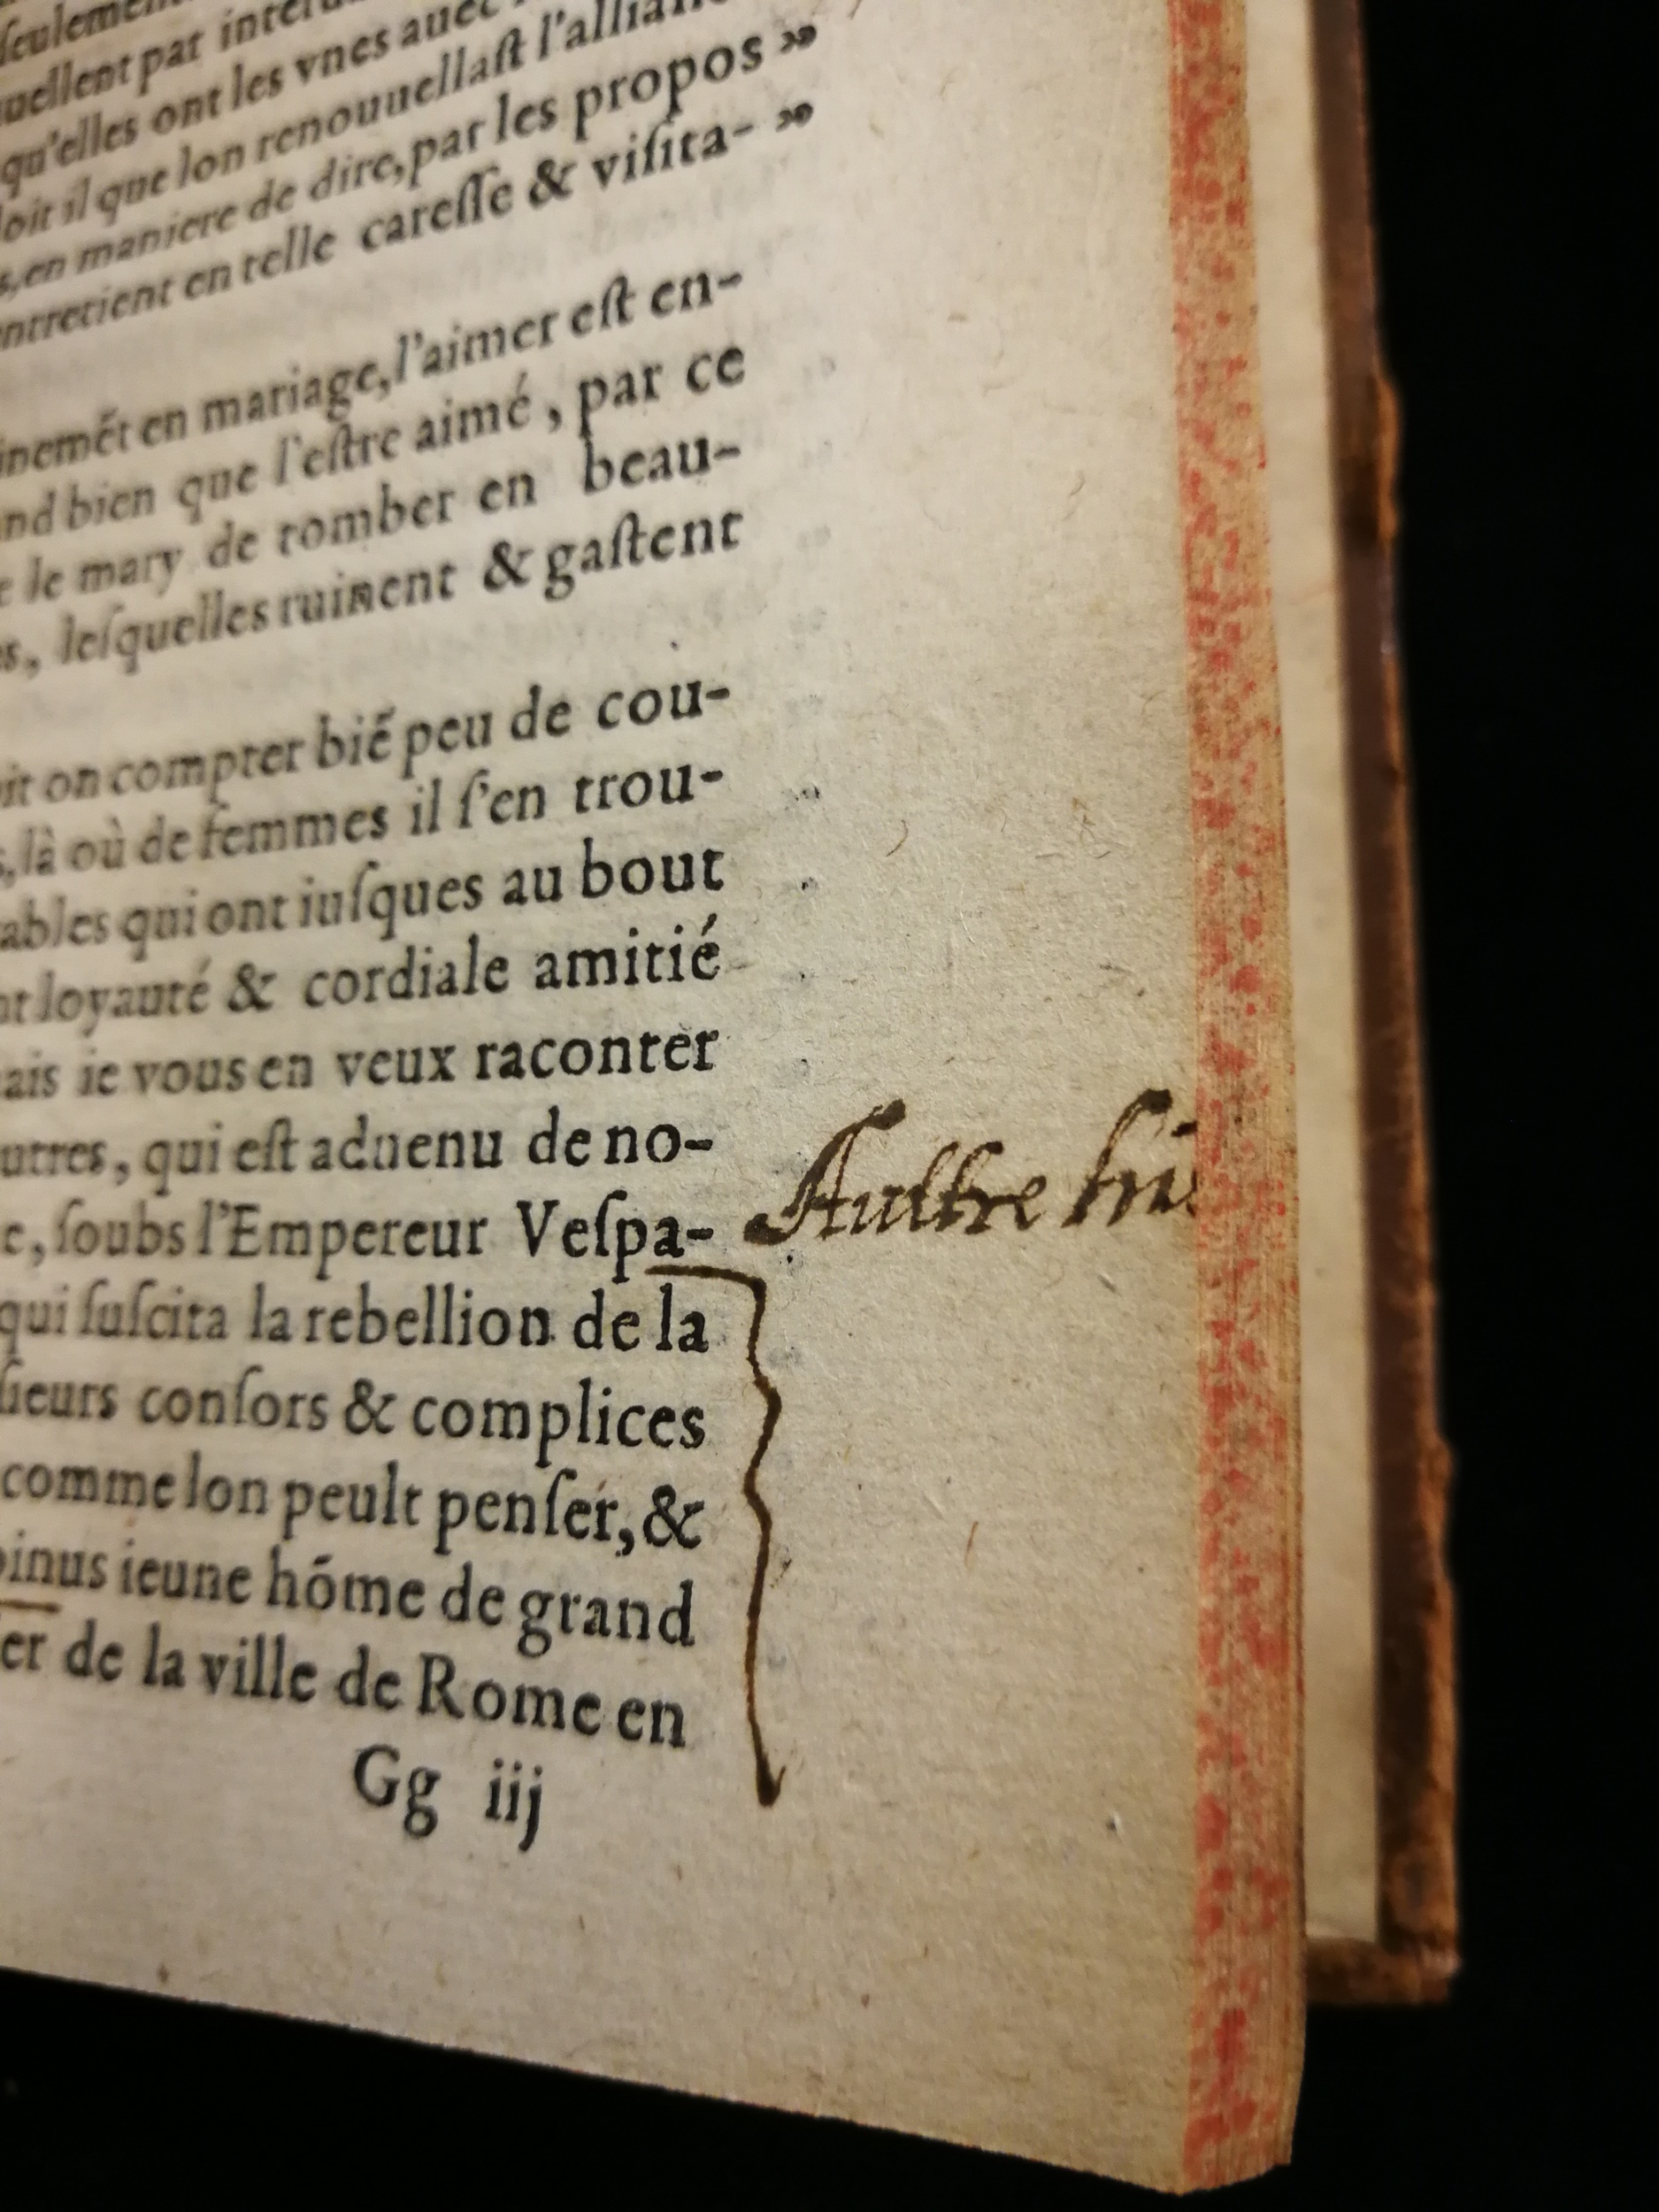 seulement
quellent par
qu'elles ont les vnes auec
doit il que lon renouuellaſt l'allian
s, en maniere de dire, par les propos »
entretient en telle careſſe & viſita- »
inemēt en mariage, l'aimer eſt en-
nd bien que l'eſtre aimé, par ce
e le mary de tomber en beau-
es, leſquelles ruinent & gaſtent
it on compter biē peu de cou-
s, là où de femmes il ſ'en trou-
ables qui ont iuſques au bout
nt loyauté & cordiale amitié
ais ie vous en veux raconter
utres, qui eſt aduenu de no-
e, ſoubs l'Empereur Veſpa-
Aultre his
qui ſuſcita la rebellion de la
ſieurs conſors & complices
comme lon peult penſer, &
binus ieune hōme de grand
er de la ville de Rome en
Gg iij